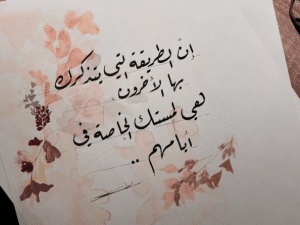 إن الطريقة التي يتذكرك
بها الآخرون،
لهي لمستك الخاصة في
أيامهم ..